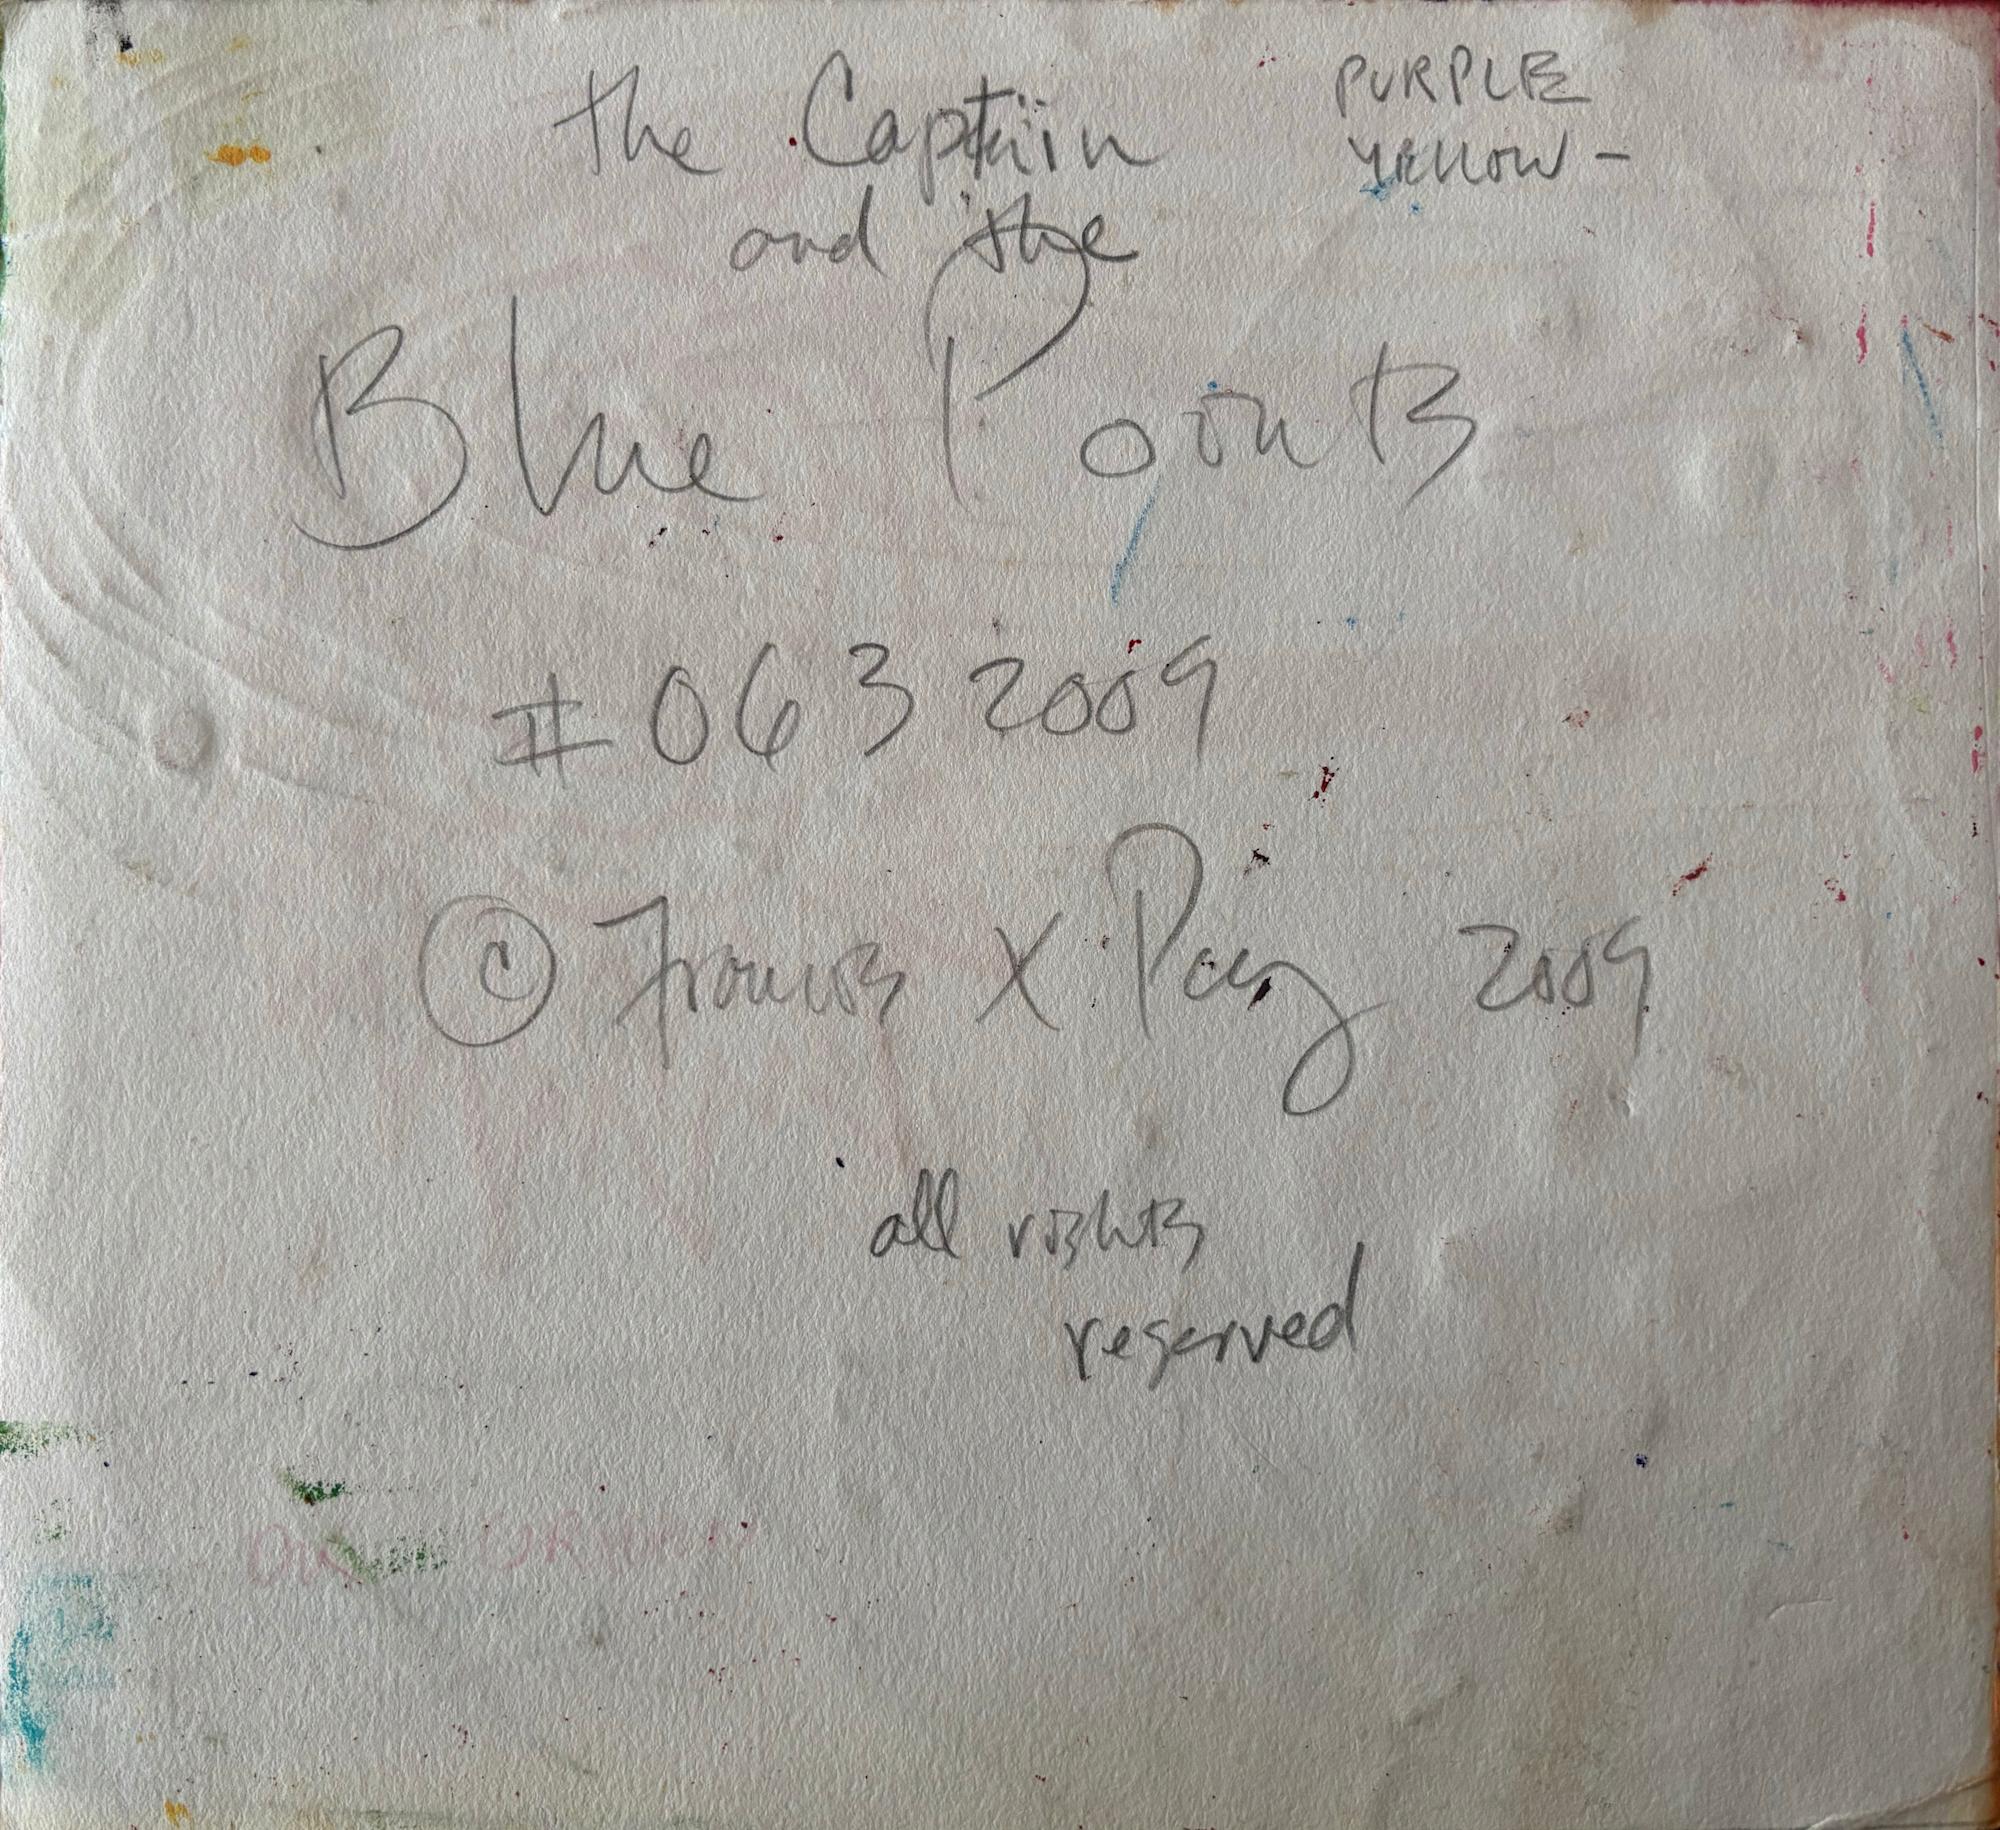 the Captain
PURPLE
YELLOW -
and the
Blue Points
# 063 2009
© Francis X Pavy 2009
all rights
reserved